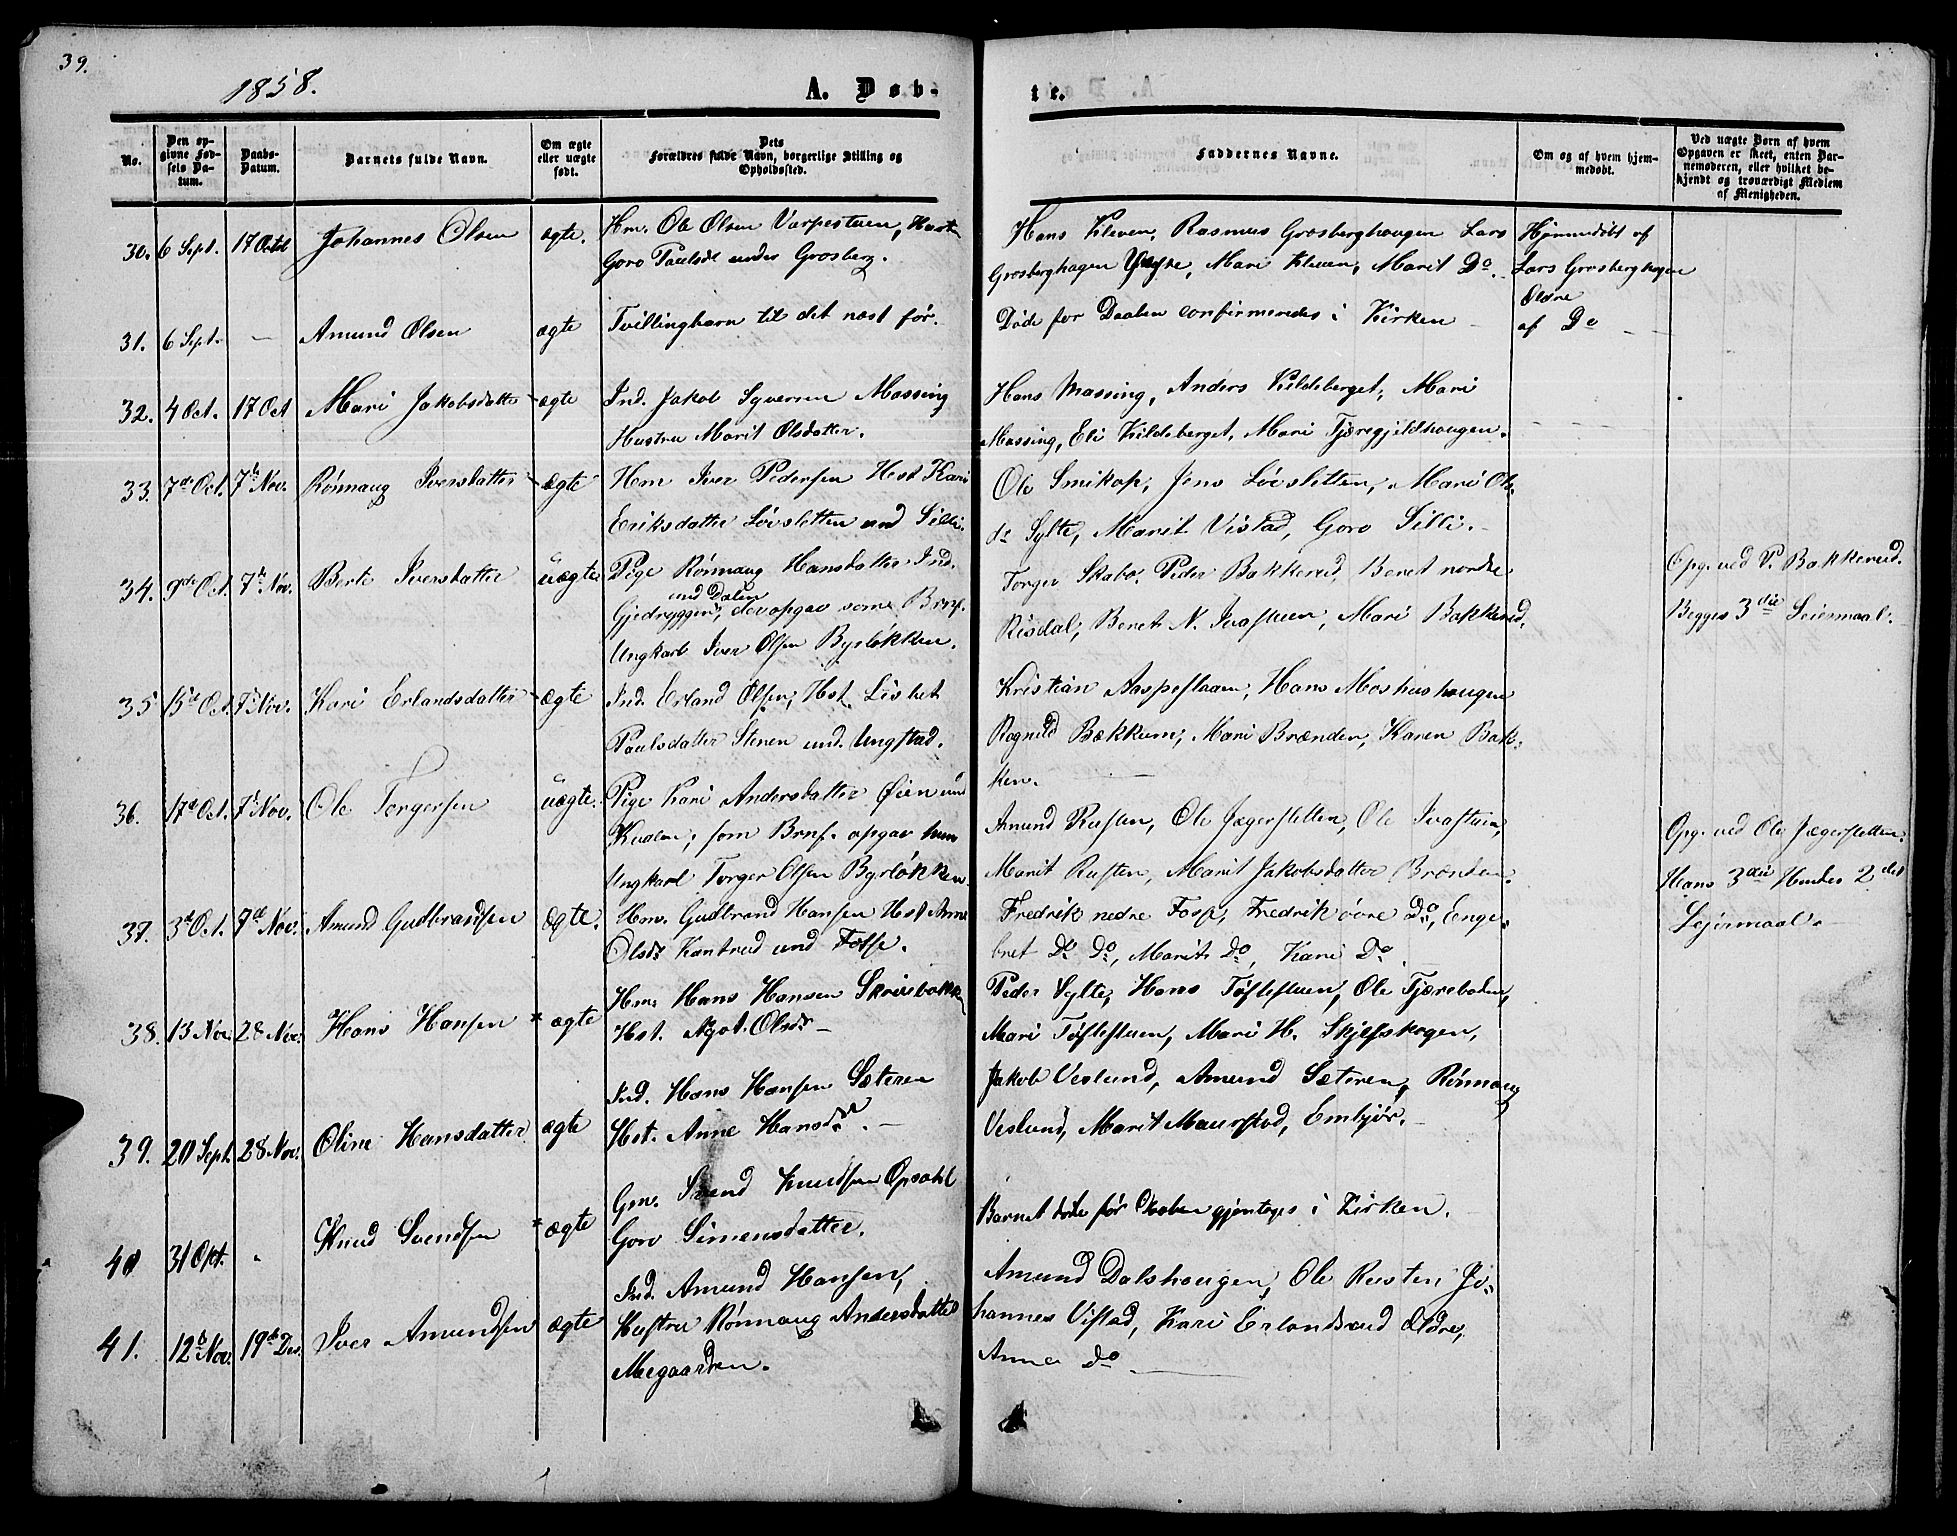 39.
1858.
A. Døb-
te.
No.
Den op-
givne Fød-
sels Da-
tum.
Daabs-
Datum.
Barnets fulde Navn.
Om ægte
eller uægte
født.
Dets
Forældres fulde Navn, borgerlige Stilling og
Opholdssted.
Faddernes Navne.
Om og af hvem hjem-
medøbt.
Ved uægte Børn af hvem
Opgaven er skeet, enten Bar-
nemoderen, eller hvilket be-
kjendt og troværdigt Medlem
af Menigheden.
30. 6 Sept. 17 Octb Johannes Olsen ægte. Hm. Ole Olsen Varpestuen, Hust
Goro Paulsdt under Grosberg.
Hans Kleven, Rasmus Grosberghougen Lars
Grosberghagen Yngre, Mari Kleven, Marit Do.
Hjemmedøbt af
Lars Grosberghagen
Ældre
31. 6 Sept. — Amund Olsen ægte Tvillingbarn til det næst før.
Døde før Daaben confirmeredes i Kirken
af Do
32. 4 Oct. 17 Oct Mari Jakobsdatter ægte Ind. Jakob Syversen Massing
Hustru Marit Olsdatter.
Hans Massing, Anders Kildeberget, Mari
Massing, Eli Kildeberget, Mari Tjæregjeldhaugen.
33. 7de Oct. 7de Nov. Rønnaug Iversdatter ægte Hm Iver Pedersen Hst Kari
Eriksdatter Løvsletten und Silli.
Ole Smikop, Jens Løvsletten, Mari Ols-
dr Sylte, Marit Vistad, Goro Silli.
34. 9de Oct. 7de Nov. Berte Iversdatter uægte Pige Rønnaug Hansdatter Ind.
und Dalen
Gjedryggen, der opgav som Brnf.
Ungkarl Iver Olsen Byrløkken.
Torger Skabo, Peder Bakkerud, Beret nordre
Risdal, Beret N. Ivastuen, Mari Bakkerud.
Opg. ved P. Bakkerud.
Begges 3die Leiermaal.
35 15d Oct. 7d Nov. Kari Erlandsdatter ægte Ind. Erland Olsen, Hst. Lisbet
Paulsdatter Stenen und. Ungstad.
Kristian Aaspeslaaen, Hans Moshushougen
Rognild Bækkum, Mari Brænden, Karen Bak-
ken.
36. 17d Oct. 7d Nov. Ole Torgersen uægte. Pige Kari Andersdatter Øien und
Kvolm; som Brnf. opgav hun
Ungkarl Torger Olsen Byrløkken.
Amund Rusten, Ole Jægersletten, Ole Ivastuen,
Marit Rusten, Marit Jakobsdatter Brænden.
Opg. ved Ole Jægersletten.
Hans 3die Hendes 2det
Lejermaal.
37. 3d Oct. 7de Nov. Amund Gudbrandsen ægte. Hm. Gudbrand Hansen Hst Anne
Olsdr Kantrud und Fosse.
Fredrik nedre Fosse, Fredrik øvre Do, Enge-
bret Do Do, Marit Do, Kari Do
38. 13 Nov. 28 Nov. Hans Hansen * ægte Hm. Hans Hansen Skrivebakk
Hst. Agot. Olsdr
Peder Sylte, Hans Tøftestuen, Ole Tjærebolen,
Mari Tøftestuen, Mari H. Skjefskogen,
39. 20 Sept. 28 Nov. Oline Hansdatter ægte Ind. Hans Hansen Sæteren
Hst. Anne Hansdr.
Jakob Veslund, Amund Sæteren, Rønnaug
Veslund, Marit Maurstad, Embjør.
40 31 Okt. Knud Svendsen * ægte Gm. Svend Knudsen Opsahl
Goro Simensdatter.
Barnet døde før Daaben gjentoges i Kirken.
41. 12te Nov. 19de Des. Iver Amundsen ægte Ind. Amund Hansen,
Hustru Rønnaug Andersdatter
Megaarden.
Amund Dalshougen, Ole Rusten Jo-
hannes Vistad, Kari Erlandsrud Ældre,
Anne Do